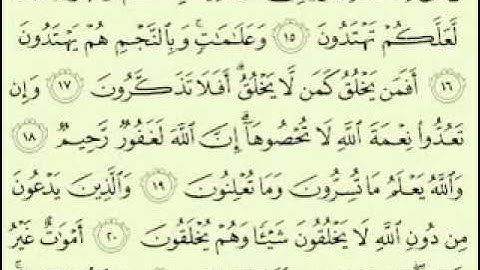 لَّعَلَّكُمْ تَهْتَدُونَ ۝١٥ وَعَلَٰمَٰتٍ ۚ وَبِالنَّجْمِ هُمْ يَهْتَدُونَ
۝١٦ أَفَمَن يَخْلُقُ كَمَن لَّا يَخْلُقُ ۗ أَفَلَا تَذَكَّرُونَ ۝١٧ وَإِن
تَعُدُّوا۟ نِعْمَةَ اللَّهِ لَا تُحْصُوهَا ۗ إِنَّ اللَّهَ لَغَفُورٌ رَّحِيمٌ ۝١٨
وَاللَّهُ يَعْلَمُ مَا تُسِرُّونَ وَمَا تُعْلِنُونَ ۝١٩ وَالَّذِينَ يَدْعُونَ
مِن دُونِ اللَّهِ لَا يَخْلُقُونَ شَيْـًٔا وَهُمْ يُخْلَقُونَ ۝٢٠ أَمْوَٰتٌ غَيْرُ